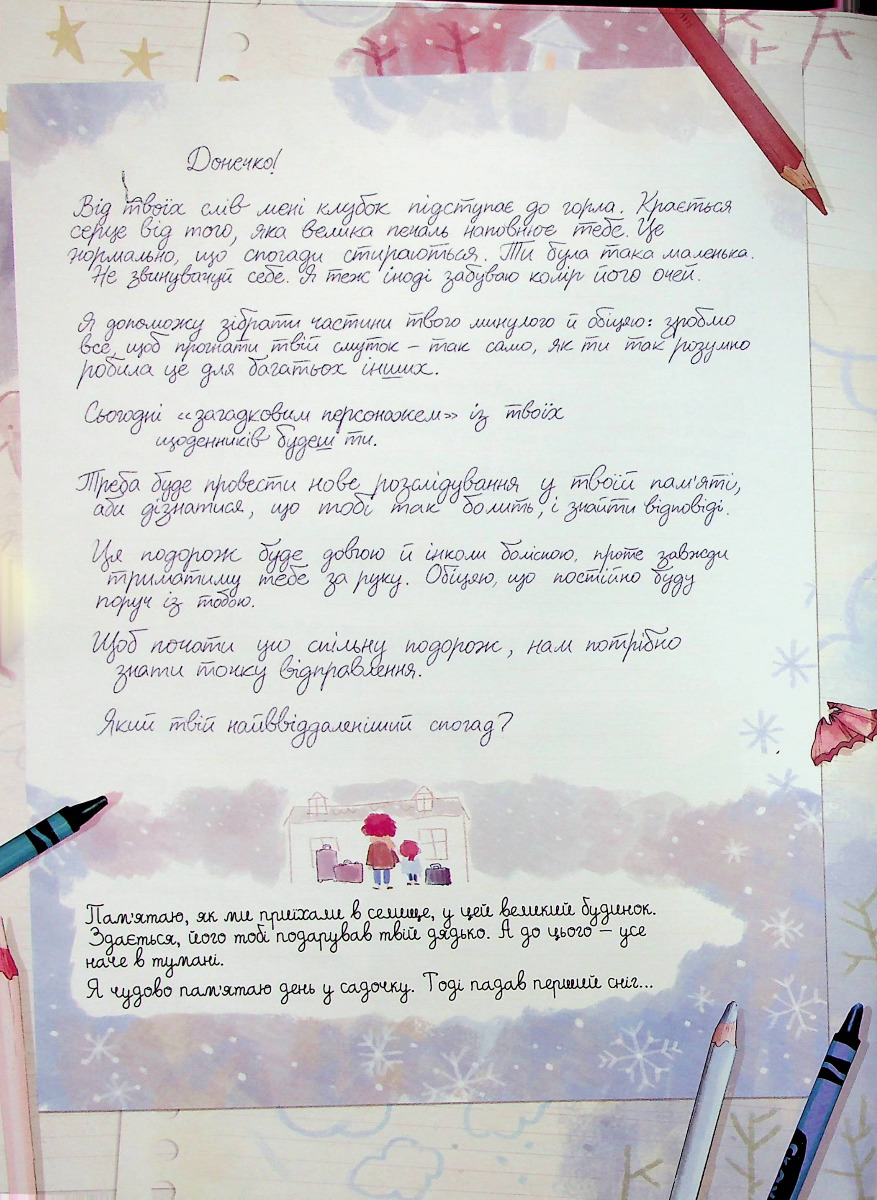 Донечко!
Від твоїх слів мені клубок підступає до горла. Крається
серце від того, яка велика печаль наповнює тебе. Це
нормально, що спогади стираються. Ти була така маленька.
Не звинувачуй себе. Я теж іноді забуваю колір його очей.
Я допоможу зібрати частини твого минулого й обіцяю: зробмо
все, щоб прогнати твій смуток – так само, як ти так розумно
робила це для багатьох інших.
Сьогодні «загадковим персонажем» із твоїх
щоденників будеш ти.
Треба буде провести нове розслідування у твоїй пам'яті,
аби дізнатися, що тобі так болить, і знайти відповіді.
Ця подорож буде довгою й інколи болісною, проте завжди
триматиму тебе за руку. Обіцяю, що постійно буду
поруч із тобою.
Щоб почати цю спільну подорож, нам потрібно
знати точку відправлення.
Який твій найввіддаленіший спогад?
Пам'ятаю, як ми приїхали в селище, у цей великий будинок.
Здається, його тобі подарував твій дядько. А до цього – усе
наче в тумані.
Я чудово пам'ятаю день у садочку. Тоді падав перший сніг...